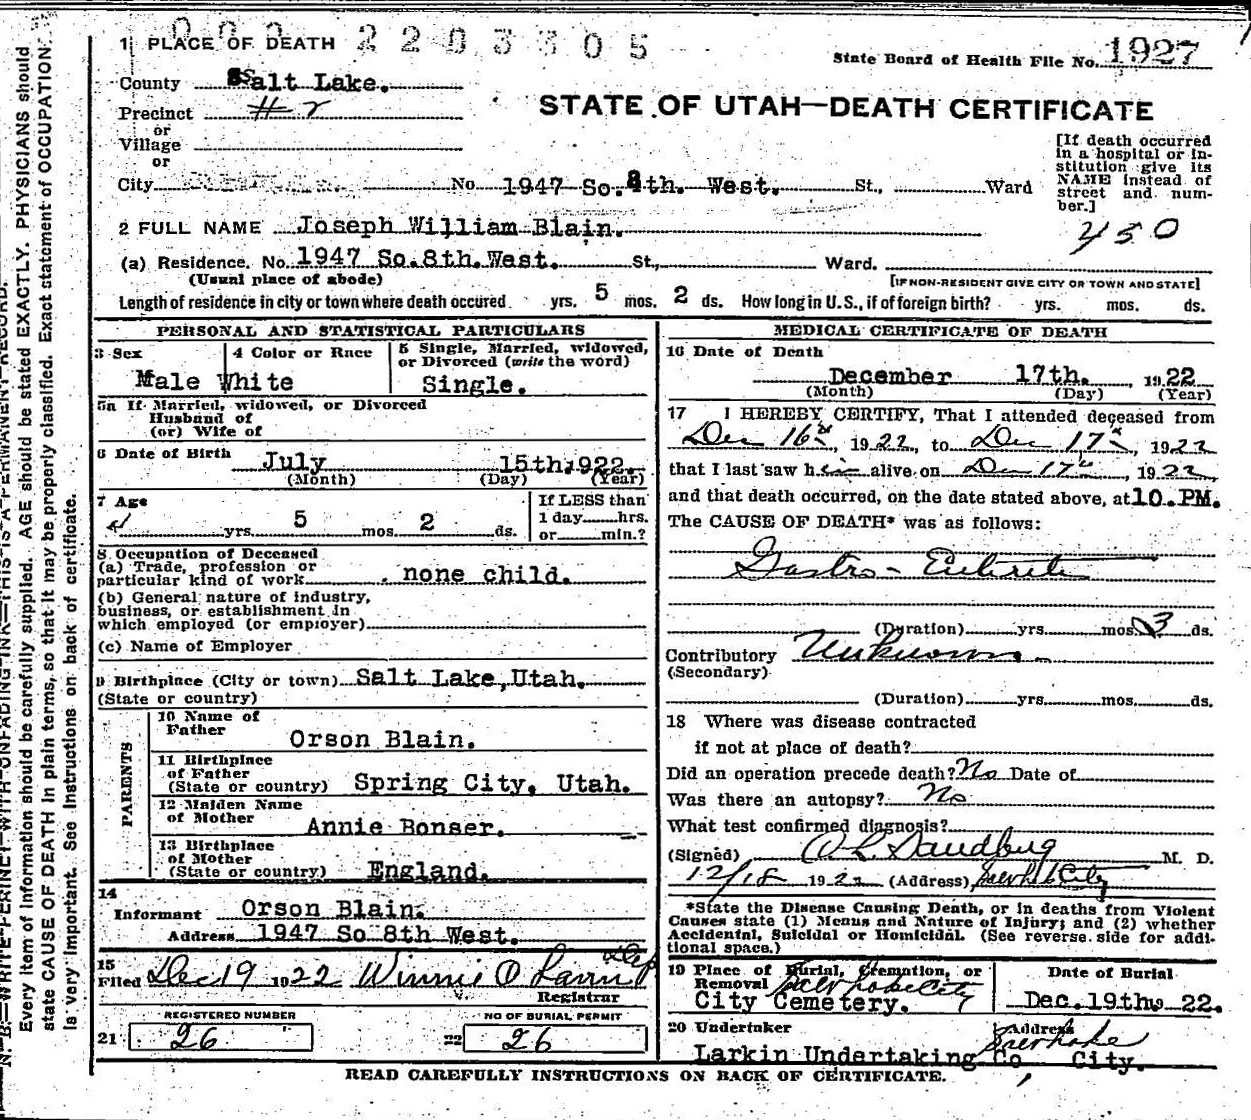 002203305
1 PLACE OF DEATH
State Board of Health File No. 1927
County Salt Lake.
Precinct # 2
or
Village
or
City
No 1947 So. 8th. West. St., Ward
STATE OF UTAH—DEATH CERTIFICATE
[If death occurred
in a hospital or in-
stitution give its
NAME instead of
street and num-
ber.]
450
2 FULL NAME Joseph William Blain.
(a) Residence. No. 1947 So. 8th. West. St., Ward.
(Usual place of abode)
[IF NON-RESIDENT GIVE CITY OR TOWN AND STATE]
Length of residence in city or town where death occured yrs. 5 mos. 2 ds. How long in U.S., if of foreign birth? yrs. mos. ds.
PERSONAL AND STATISTICAL PARTICULARS
3 Sex
Male
4 Color or Race
White
5 Single, Married, widowed,
or Divorced (write the word)
Single.
5a If Married, widowed, or Divorced
Husband of
(or) Wife of
6 Date of Birth July 15th, 1922.
(Month) (Day) (Year)
7 Age
yrs. 5 mos. 2 ds.
If LESS than
1 day hrs.
or min.?
8 Occupation of Deceased
(a) Trade, profession or
particular kind of work none child.
(b) General nature of industry,
business, or establishment in
which employed (or employer)
(c) Name of Employer
9 Birthplace (City or town) Salt Lake, Utah.
(State or country)
PARENTS
10 Name of
Father
Orson Blain.
11 Birthplace
of Father
(State or country) Spring City, Utah.
12 Maiden Name
of Mother
Annie Bonser.
13 Birthplace
of Mother
(State or country) England.
14
Informant Orson Blain.
Address 1947 So 8th West.
15
Filed Dec 19 1922 Winnie O Dep
Registrar
REGISTERED NUMBER
21 26
NO OF BURIAL PERMIT
22 26
MEDICAL CERTIFICATE OF DEATH
16 Date of Death
December 17th. , 1922
(Month) (Day) (Year)
17 I HEREBY CERTIFY, That I attended deceased from
Dec 16th, 1922 to Dec 17th, 1922
that I last saw him alive on Dec 17th, 1922
and that death occurred, on the date stated above, at 10. PM.
The CAUSE OF DEATH* was as follows:
Gastro-Enteritis
(Duration) yrs. mos. 3 ds.
Contributory Unknown.
(Secondary)
(Duration) yrs. mos. ds.
18 Where was disease contracted
if not at place of death?
Did an operation precede death? No Date of
Was there an autopsy? No
What test confirmed diagnosis?
(Signed) O L Sandberg M. D.
12/18 1922 (Address) Salt Lake City
*State the Disease Causing Death, or in deaths from Violent
Causes state (1) Menus and Nature of Injury; and (2) whether
Accidental, Suicidal or Homicidal. (See reverse side for addi-
tional space.)
19 Place of Burial, Cremation, or
Removal Salt Lake City
City Cemetery.
Date of Burial
Dec. 19th, 22.
20 Undertaker
Larkin Undertaking Co
Address
Salt Lake
City.
READ CAREFULLY INSTRUCTIONS ON BACK OF CERTIFICATE.
N. B.—WRITE PERINLY WITH UNFADING INK—THIS IS A PERMANENT RECORD.
Every item of information should be carefully supplied. AGE should be stated EXACTLY. PHYSICIANS should
state CAUSE OF DEATH in plain terms, so that it may be properly classified. Exact statement of OCCUPATION
is very important. See instructions on back of certificate.